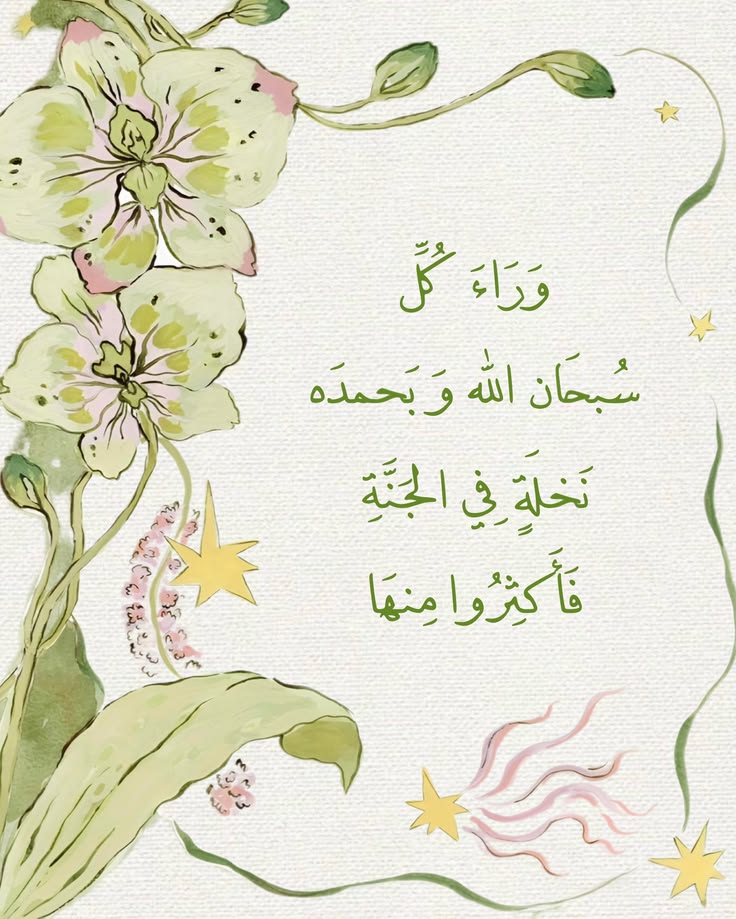 وَرَاءَ كُلِّ
سُبحَان الله وَ بَحمدَه
نَخلَةٍ فِي الجَنَّةِ
فَأَكثِرُوا مِنهَا